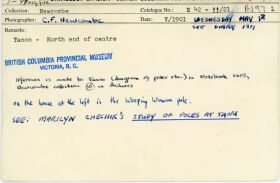 Collection: Newcombe Catalogue No.:
Photographer: C.F. Newcombe Date: V/1901 WEDNESDAY MAY
SEE DIARY 1901
Tanoo - North end of centre
BRITISH COLUMBIA PROVINCIAL MUSEUM
VICTORIA, B.C.
reference is made to Tanoo (diagrams of poles etc.) in Notebook
Newcombe collection in Archives
on the house at the left is the Weeping Woman pole.
SEE: MARILYN CHECHIK'S STUDY OF POLES AT TANU